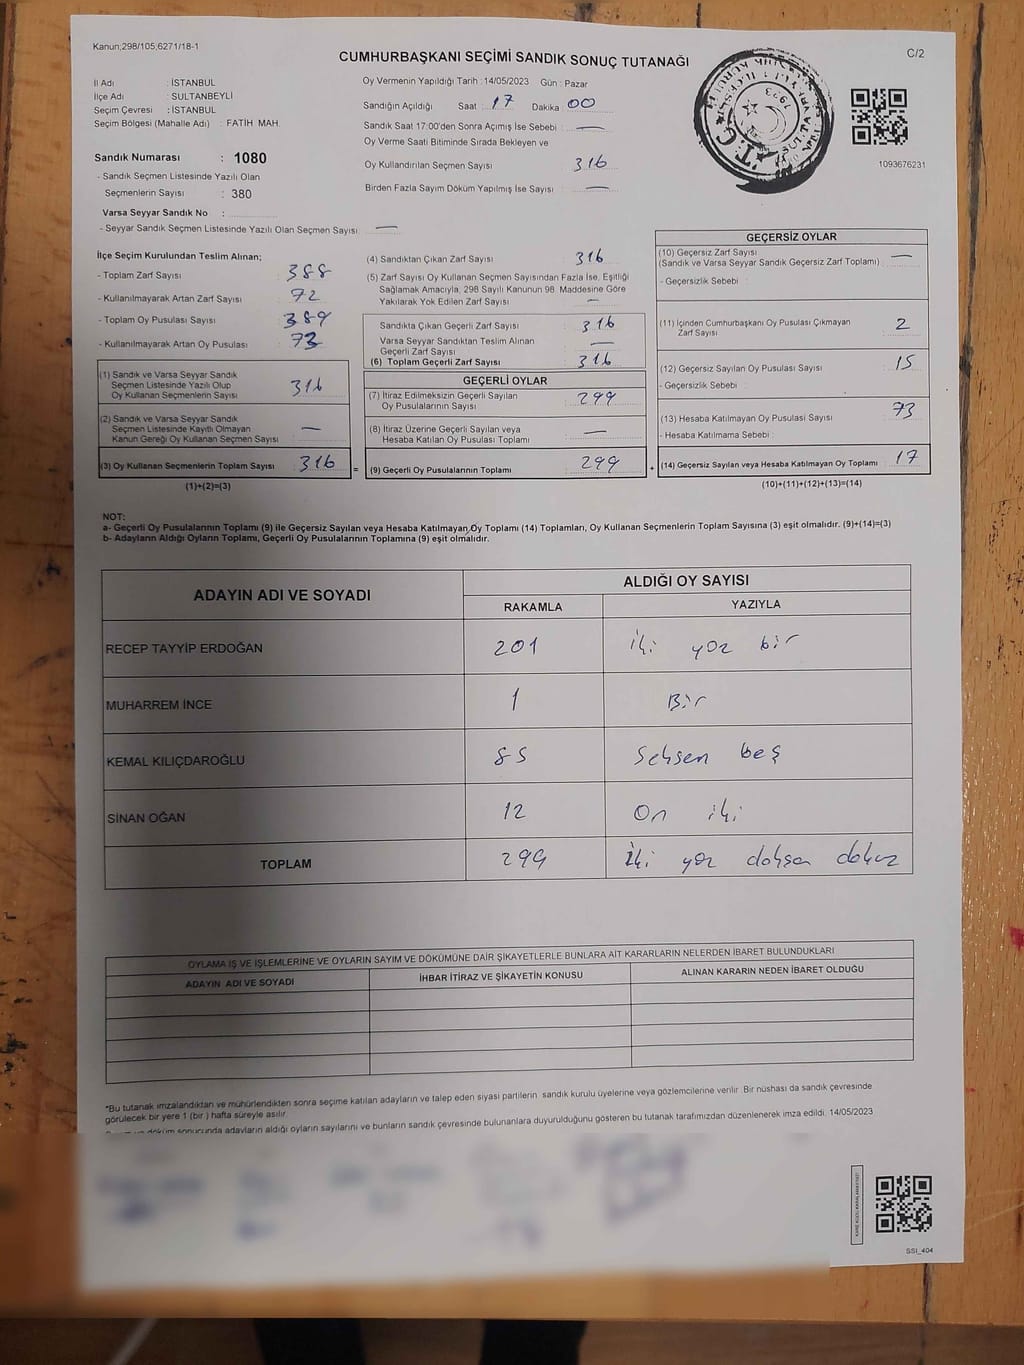 Kanun;298/105;6271/18-1
C/2
CUMHURBAŞKANI SEÇİMİ SANDIK SONUÇ TUTANAĞI
İl Adı : İSTANBUL
İlçe Adı : SULTANBEYLİ
Seçim Çevresi : İSTANBUL
Seçim Bölgesi (Mahalle Adı) : FATİH MAH.
Sandık Numarası : 1080
- Sandık Seçmen Listesinde Yazılı Olan
Seçmenlerin Sayısı : 380
Varsa Seyyar Sandık No :
- Seyyar Sandık Seçmen Listesinde Yazılı Olan Seçmen Sayısı: —
Oy Vermenin Yapıldığı Tarih : 14/05/2023 Gün : Pazar
Sandığın Açıldığı Saat : 17 Dakika : 00
Sandık Saat 17:00'den Sonra Açılmış İse Sebebi : —
Oy Verme Saati Bitiminde Sırada Bekleyen ve
Oy Kullandırılan Seçmen Sayısı : 316
Birden Fazla Sayım Döküm Yapılmış İse Sayısı : —
T.C.
1923
1093676231
İlçe Seçim Kurulundan Teslim Alınan;
- Toplam Zarf Sayısı : 388
- Kullanılmayarak Artan Zarf Sayısı : 72
- Toplam Oy Pusulası Sayısı : 389
- Kullanılmayarak Artan Oy Pusulası : 73
(1) Sandık ve Varsa Seyyar Sandık
Seçmen Listesinde Yazılı Olup
Oy Kullanan Seçmenlerin Sayısı : 316
(2) Sandık ve Varsa Seyyar Sandık
Seçmen Listesinde Kayıtlı Olmayan
Kanun Gereği Oy Kullanan Seçmen Sayısı : —
(3) Oy Kullanan Seçmenlerin Toplam Sayısı : 316 =
(1)+(2)=(3)
(4) Sandıktan Çıkan Zarf Sayısı : 316
(5) Zarf Sayısı Oy Kullanan Seçmen Sayısından Fazla İse, Eşitliği
Sağlamak Amacıyla, 298 Sayılı Kanunun 98. Maddesine Göre
Yakılarak Yok Edilen Zarf Sayısı : —
Sandıkta Çıkan Geçerli Zarf Sayısı : 316
Varsa Seyyar Sandıktan Teslim Alınan
Geçerli Zarf Sayısı : —
(6) Toplam Geçerli Zarf Sayısı : 316
GEÇERLİ OYLAR
(7) İtiraz Edilmeksizin Geçerli Sayılan
Oy Pusulalarının Sayısı : 299
(8) İtiraz Üzerine Geçerli Sayılan veya
Hesaba Katılan Oy Pusulası Toplamı : —
(9) Geçerli Oy Pusulalarının Toplamı : 299 +
GEÇERSİZ OYLAR
(10) Geçersiz Zarf Sayısı
(Sandık ve Varsa Seyyar Sandık Geçersiz Zarf Toplamı) : —
- Geçersizlik Sebebi :
(11) İçinden Cumhurbaşkanı Oy Pusulası Çıkmayan
Zarf Sayısı : 2
(12) Geçersiz Sayılan Oy Pusulası Sayısı : 15
- Geçersizlik Sebebi :
(13) Hesaba Katılmayan Oy Pusulası Sayısı : 73
- Hesaba Katılmama Sebebi :
(14) Geçersiz Sayılan veya Hesaba Katılmayan Oy Toplamı : 17
(10)+(11)+(12)+(13)=(14)
NOT:
a- Geçerli Oy Pusulalarının Toplamı (9) ile Geçersiz Sayılan veya Hesaba Katılmayan Oy Toplamı (14) Toplamları, Oy Kullanan Seçmenlerin Toplam Sayısına (3) eşit olmalıdır. (9)+(14)=(3)
b- Adayların Aldığı Oyların Toplamı, Geçerli Oy Pusulalarının Toplamına (9) eşit olmalıdır.
ADAYIN ADI VE SOYADI
ALDIĞI OY SAYISI
RAKAMLA YAZIYLA
RECEP TAYYİP ERDOĞAN 201 İki yoz bir
MUHARREM İNCE 1 Bir
KEMAL KILIÇDAROĞLU 85 Seksen beş
SİNAN OĞAN 12 On iki
TOPLAM 299 İki yoz doksan dokuz
OYLAMA İŞ VE İŞLEMLERİNE VE OYLARIN SAYIM VE DÖKÜMÜNE DAİR ŞİKAYETLERLE BUNLARA AİT KARARLARIN NELERDEN İBARET BULUNDUKLARI
ADAYIN ADI VE SOYADI İHBAR İTİRAZ VE ŞİKAYETİN KONUSU ALINAN KARARIN NEDEN İBARET OLDUĞU
*Bu tutanak imzalandıktan ve mühürlendikten sonra seçime katılan adayların ve talep eden siyasi partilerin sandık kurulu üyelerine veya gözlemcilerine verilir. Bir nüshası da sandık çevresinde
görülecek bir yere 1 (bir ) hafta süreyle asılır.
döküm sonucunda adayların aldığı oyların sayılarını ve bunların sandık çevresinde bulunanlara duyurulduğunu gösteren bu tutanak tarafımızdan düzenlenerek imza edildi. 14/05/2023
SSİ_404